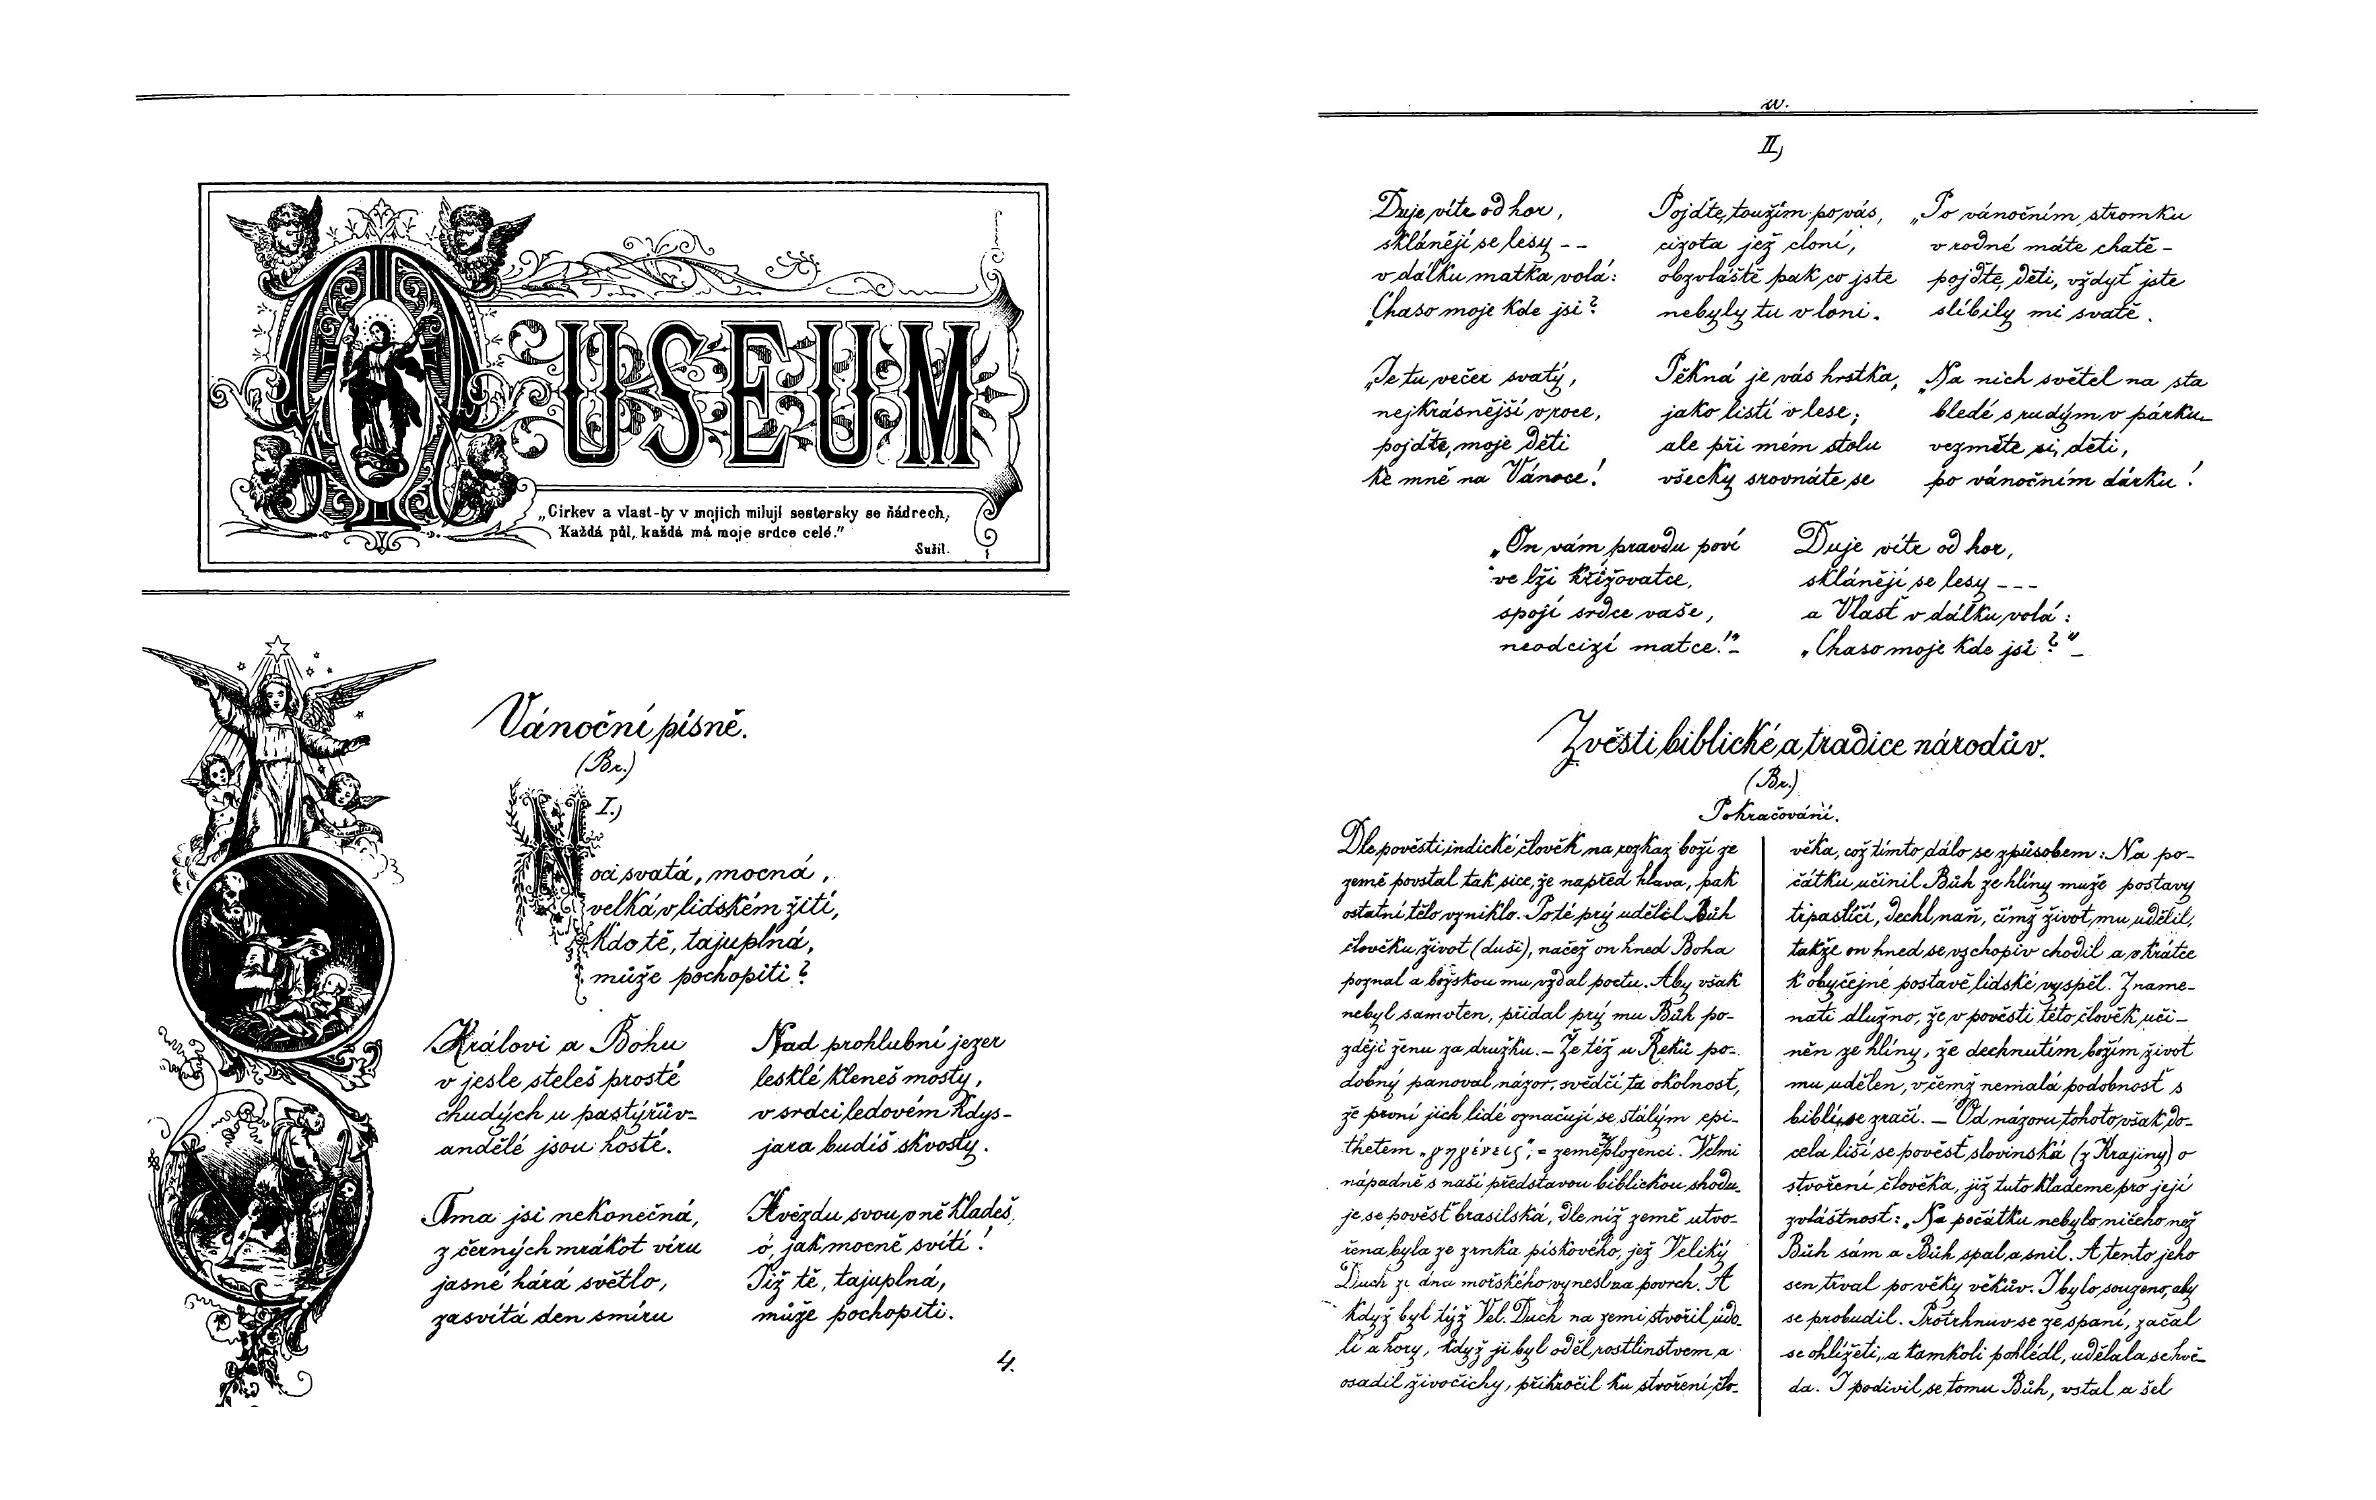 MUSEUM
„Církev a vlast-ty v mojich milují sestersky se ňádrech,
Každá půl, každá má moje srdce celé.”
Sušil.
Vánoční písně.
(Br.)
I.)
Noci svatá, mocná,
velká v lidském žití,
Kdo tě, tajuplná,
může pochopiti?
Královi a Bohu
v jesle steleš prosté
chudých u pastýřův-
andělé jsou hosté.
Tma jsi nekonečná,
z černých mrákot víru
jasné hárá světlo,
zasvítá den smíru
Nad prohlubní jezer
lesklé kleneš mosty,
v srdci ledovém kdys-
jara budíš skvosty.
Hvězdu svou v ně kladeš,
ó, jak mocně svítí!
Již tě, tajuplná,
může pochopiti.
4.
II.)
Duje vítr od hor,
sklánějí se lesy - -
v dálku matka volá:
„Chaso moje kde jsi?
„Je tu večer svatý,
nejkrásnější v roce,
pojďte, moje děti
ke mně na Vánoce!
Pojďte, toužím po vás,
cizota jež cloní,
obzvláště pak co jste
nebyly tu vloni.
Pěkná je vás hrstka,
jako listí v lese;
ale při mém stolu
všecky srovnáte se
„Po vánočním stromku
v rodné máte chatě-
pojďte, děti, vždyť jste
slíbily mi svatě.
„Na nich světel na sta
bledé s rudým v párku
vezměte si, děti,
po vánočním dárku!
„On vám pravdu poví
ve lži křižovatce,
spojí srdce vaše,
neodcizí matce!"-
Duje vítr od hor,
sklánějí se lesy - - -
a Vlasť v dálku volá:
„Chaso moje kde jsi?" -
Zvěsti biblické a tradice národův.
(Br.)
Pokračování.
Dle pověsti indické člověk na rozkaz boží ze
země povstal tak sice, že napřed hlava, pak
ostatní tělo vzniklo. Poté prý udělil Bůh
člověku život (duši), načež on hned Boha
poznal a božskou mu vzdal poctu. Aby však
nebyl samoten, přidal prý mu Bůh po-
zději ženu za družku. - Že též u Řeků po-
dobný panoval názor, svědčí ta okolnosť,
že první jich lidé označují se stálým epi-
thetem „γηγένεις"; = zeměplozenci. Velmi
nápadně s naší představou biblickou shodu-
je se pověsť brasilská, dle níž země utvo-
řena byla ze zrnka pískového, jež Veliký
Duch ze dna mořského vynesl na povrch. A
když byl týž Vel. Duch na zemi stvořil údo-
lí a hory, když ji byl oděl rostlinstvem a
osadil živočichy, přikročil ku stvoření člo-
věka, což tímto dálo se způsobem: Na po-
čátku učinil Bůh ze hlíny muže postavy
trpasličí, dechl naň, čímž život mu udělil,
takže on hned se vzchopiv chodil a v krátce
k obyčejné postavě lidské vyspěl. Zname-
nati dlužno, že v pověsti této člověk uči-
něn ze hlíny, že dechnutím božím život
mu udělen, v čemž nemalá podobnosť s
biblí se zračí. - Od názoru tohoto však do-
cela liší se pověsť slovinská (z Krajiny) o
stvoření člověka, již tuto klademe pro její
zvláštnost: „Na počátku nebylo ničeho než
Bůh sám a Bůh spal a snil. A tento jeho
sen trval po věky věkův. I bylo souzeno, aby
se probudil. Protrhnuv se ze spaní, začal
se ohlížeti, a kamkoli pohlédl, udělala se hvě-
da. I podivil se tomu Bůh, vstal a šel